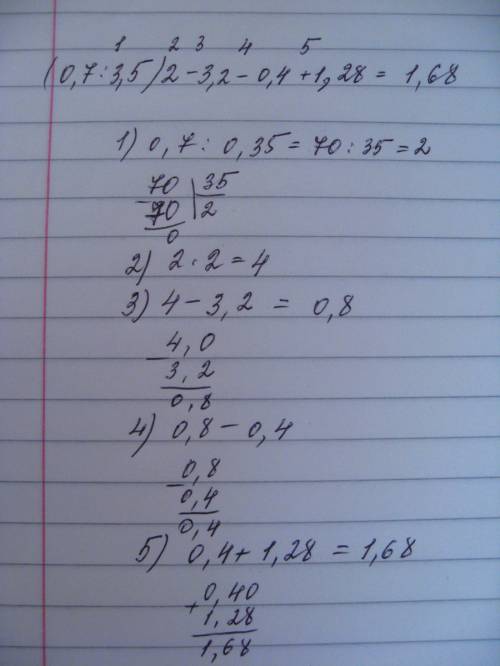 1 2 3 4 5
(0,7:3,5)2-3,2-0,4+1,28= 1,68
1) 0,7: 0,35=70:35=2
70 35
-70 2
0
2) 2·2=4
3) 4-3,2 = 0,8
4,0
-3,2
0,8
4) 0,8-0,4
-0,8
0,4
0,4
5) 0,4+1,28=1,68
0,40
+1,28
1,68